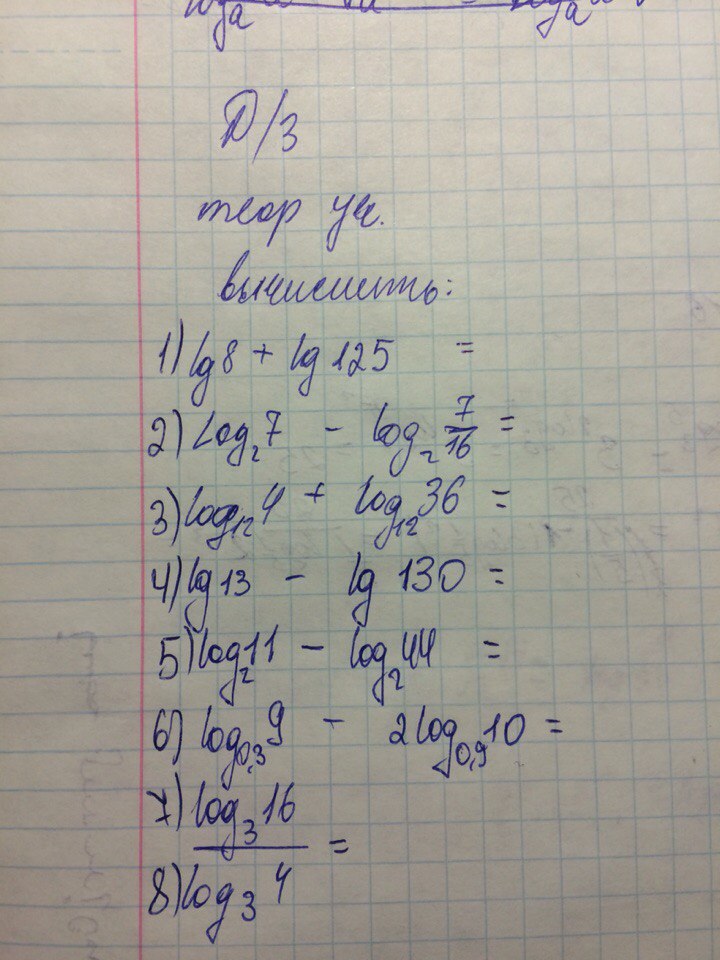 Д/З
теор уч.
вычислить:
1) lg 8 + lg 125 =
2) log₂ 7 - log₂ 7/16 =
3) log₁₂ 4 + log₁₂ 36 =
4) lg 13 - lg 130 =
5) log₂ 11 - log₂ 44 =
6) log₀,₃ 9 - 2 log₀,₉ 10 =
7) log₃ 16
=
8) log₃ 4